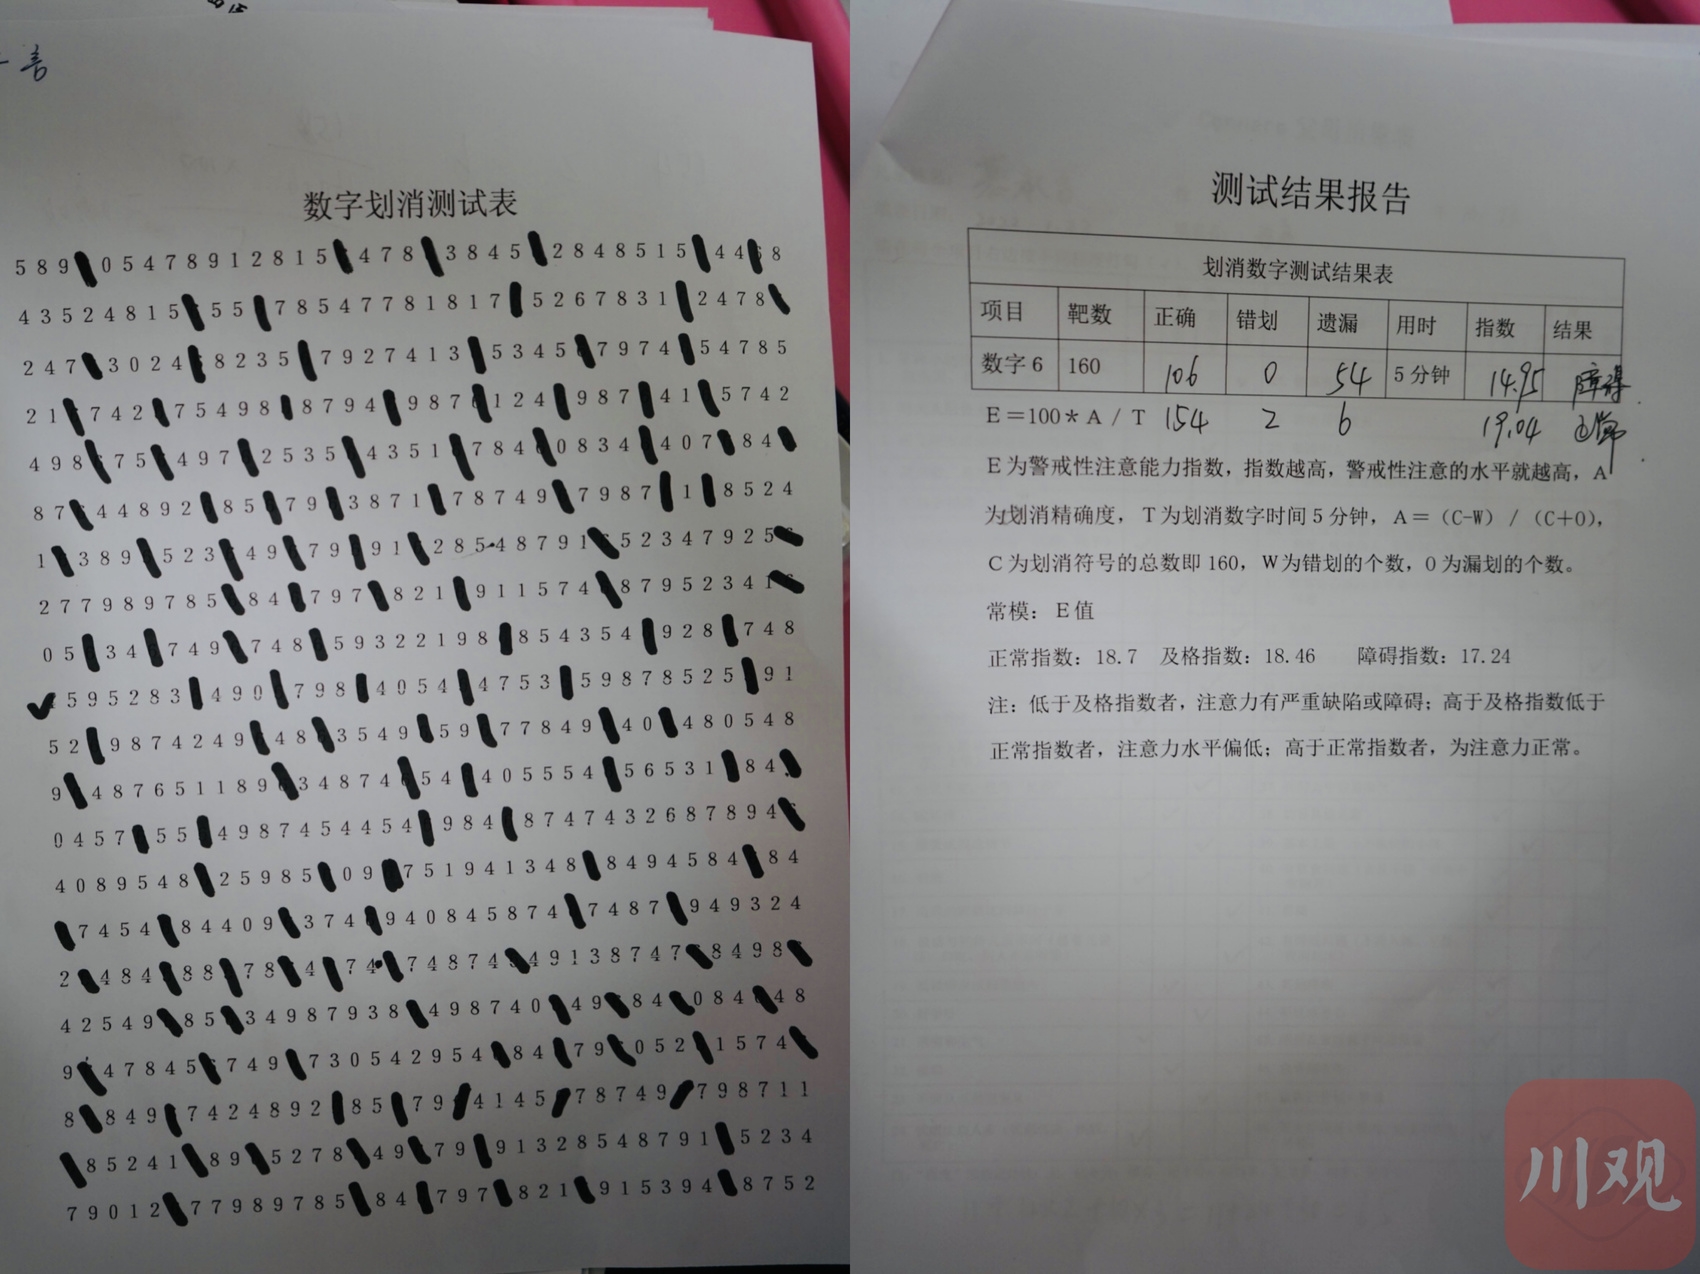 数字划消测试表
589 05478912815 478 3845 2848515 44 68
43524815 55 78547781817 5267831 2478
247 3024 8235 7927413 5345 7974 54785
21 742 75498 8794 987 124 987 41 5742
498 75 497 2535 4351 784 0834 407 84
87 44892 85 79 3871 78749 7987 1 8524
1 389 523 49 79 91 285 48791 52347925
277989785 84 797 821 911574 87952341
05 34 749 748 59322198 854354 928 748
595283 490 798 4054 4753 59878525 91
52 9874249 48 3549 59 77849 40 480548
9 487651189 34874 54 405554 56531 84
0457 55 4987454454 984 8747432687894
4089548 25985 09 751941348 8494584 84
7454 84409 374 940845874 7487 949324
2 484 88 78 4 74 74874 49138747 8498
42549 85 34987938 498740 49 84 084 48
9 47845 749 730542954 84 79 052 1574
8 849 7424892 85 79 4145 78749 798711
85241 89 5278 49 79 91328548791 5234
79012 77989785 84 797 821 915394 8752
测试结果报告
划消数字测试结果表
项目 靶数 正确 错划 遗漏 用时 指数 结果
数字6 160 106 0 54 5分钟 14.95 障碍
E=100*A/T 154 2 6 19.04 正常
E为警戒性注意能力指数，指数越高，警戒性注意的水平就越高，A
为划消精确度，T为划消数字时间5分钟，A=（C-W）/（C+O），
C为划消符号的总数即160，W为错划的个数，O为漏划的个数。
常模：E值
正常指数：18.7 及格指数：18.46 障碍指数：17.24
注：低于及格指数者，注意力有严重缺陷或障碍；高于及格指数低于
正常指数者，注意力水平偏低；高于正常指数者，为注意力正常。
川观